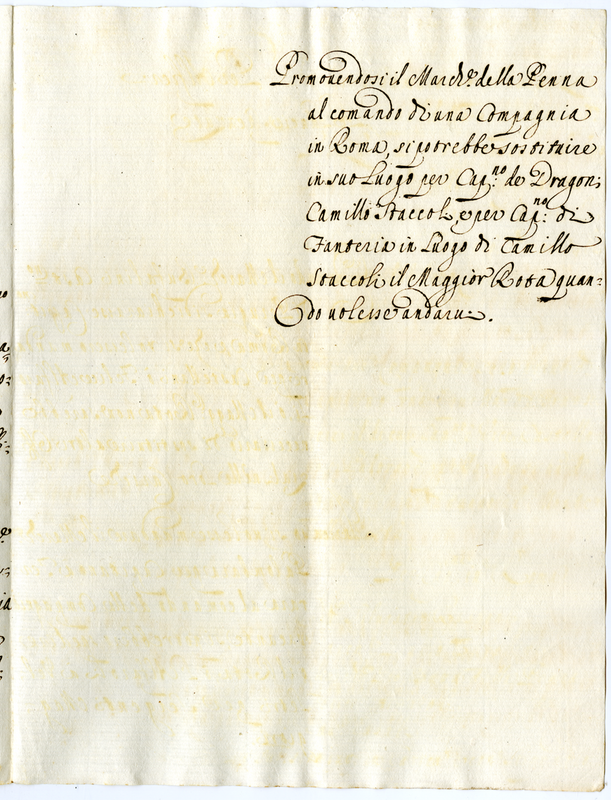 Promovendosi il March.e della Penna
al comando di una Compagnia
in Roma, si potrebbe sostituire
in suo Luogo per Cap.no de Dragoni
Camillo Staccoli, e per Cap.no di
Fanteria in Luogo di Camillo
Staccoli il Maggior Rota quan=
do volesse andarvi.